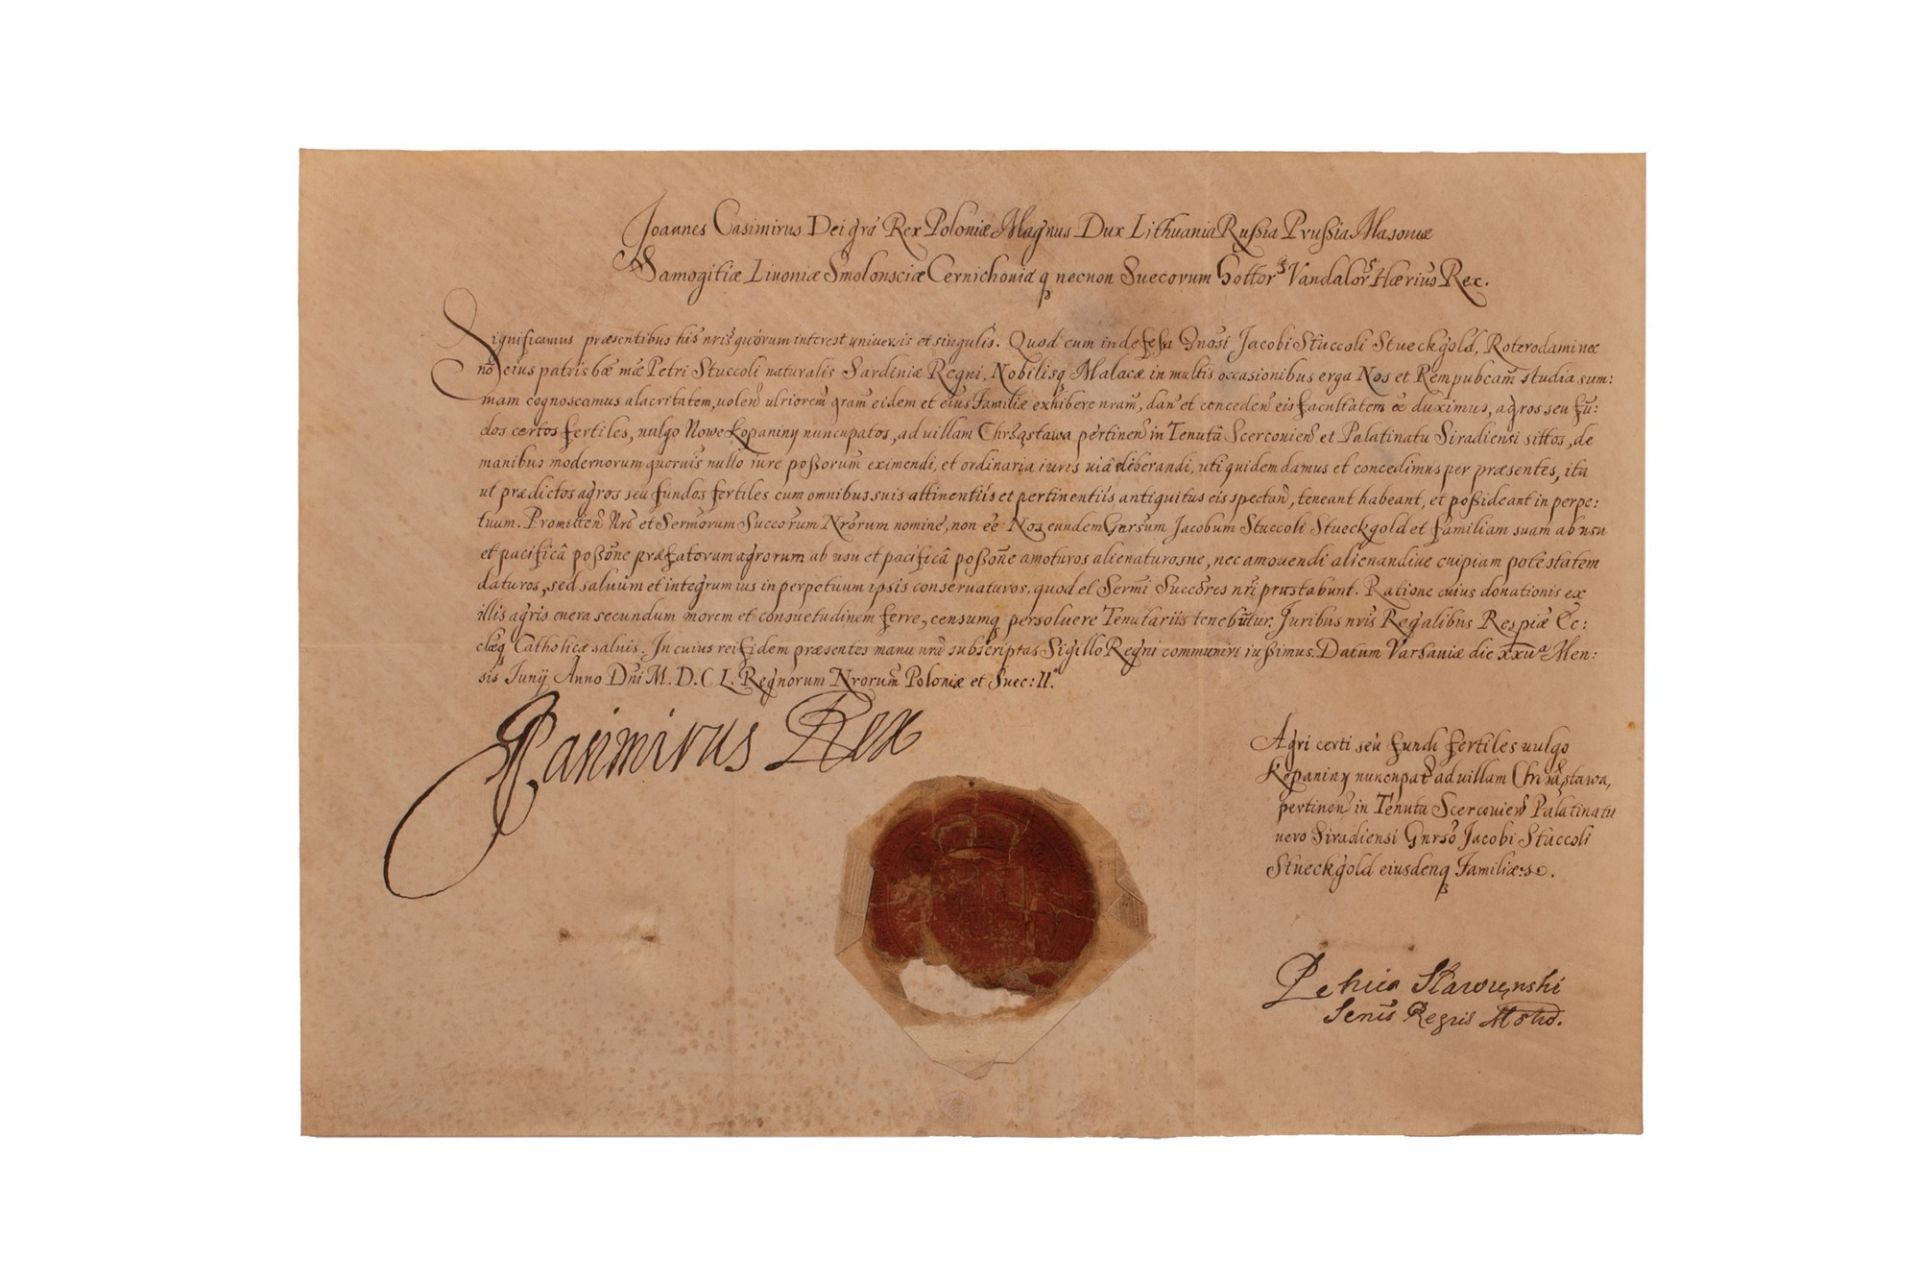 Joannes Casimirus Dei grã Rex Poloniæ Magnus Dux Lithuania Rußia Prußia Masoviæ
Samogitiæ Livoniæ Smolonsciæ Cernichoniæ q necnon Suecorum Gottor Vandalor Hærius Rex.
Significamus præsentibus his nris quorum interest universis et singulis. Quod cum indefeßa Gnosi Jacobi Stuccoli Stueckgold, Roterodami nec
nõ eius patris bæ mæ Petri Stuccoli naturalis Sardiniæ Regni, Nobilisq Malacæ in multis occasionibus erga Nos et Rempubcam studia sum:
mam cognoscamus alacritatem, uolen ulriorem gram eidem et eius Familiæ exhibere nram, dan et conceden eis facultatem eẽ duximus, agros seu fu:
dos certos fertiles, uulgo Nowe Kopaniny nuncupatos, ad uillam Chrząstawa pertinen in Tenutâ Scerconien et Palatinatu Siradiensi sittos, de
manibus modernorum quoruis nullo iure poßorum eximendi, et ordinaria iuris uiâ deliberandi, uti quidem damus et concedimus per præsentes, ita
ut prædictos agros seu fundos fertiles cum omnibus suis attinentiis et pertinentiis antiquitus eis spectan, teneant habeant, et poßideant in perpe:
tuum. Promitten Nrõ et Sermorum Succorum Nrorum nomine, non eẽ Nos eundem Gnrsum Jacobum Stuccoli Stueckgold et familiam suam ab usu
et pacificâ poßone præfatorum agrorum ab usu et pacificâ poßone amoturos alienaturosue, nec amouendi alienandiue cuipiam potestatem
daturos, sed saluum et integrum ius in perpetuum ipsis conseruaturos, quod et Sermi Succores nri præstabunt. Ratione cuius donationis ex
illis agris onera secundum morem et consuetudinem ferre, censumq persoluere Tenutariis tenebuntur, Juribus nris Regalibus Respiæ Ec:
clæq Catholicæ saluis. In cuius rei fidem præsentes manu nrâ subscriptas Sigillo Regni communiri iußimus. Datum Varsauiæ die xxuᵃ Men:
sis Junij Anno Dni M.D.C L. Regnorum Nrorum Poloniæ et Suec: II.
Casimirus Rex
Agri certi seu fundi fertiles uulgo
Kopaniny nuncupat ad uillam Chrząstawa,
pertinen in Tenuta Scerconien Palatinatu
uero Siradiensi Gnrsõ Jacobi Stuccoli
Stueckgold eiusdenq Familiæ:
Regni